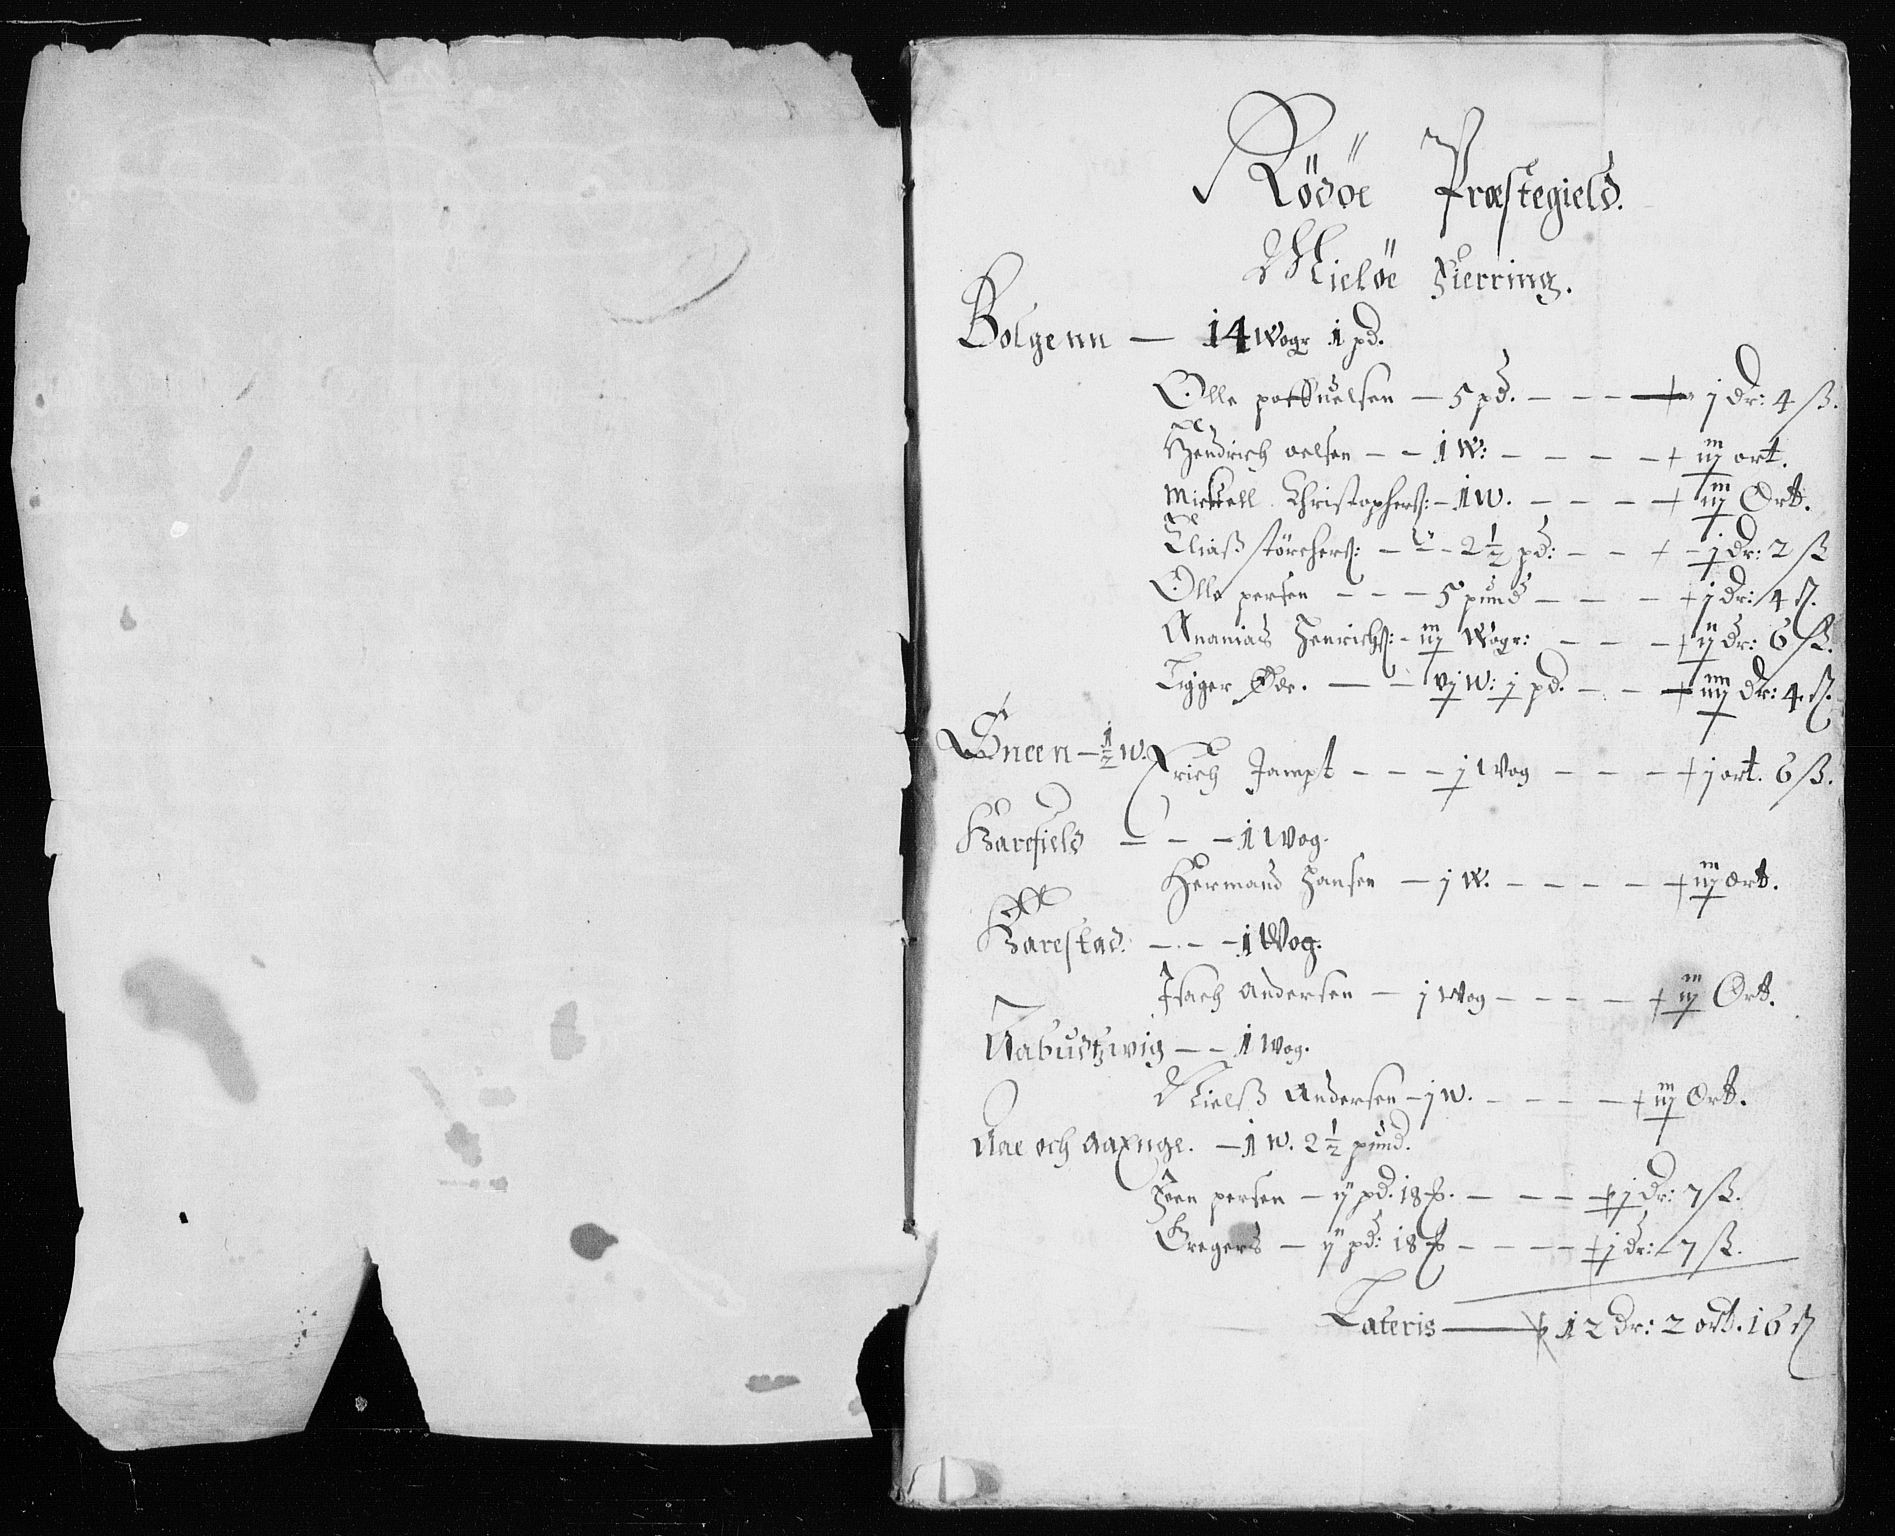 Rödöe Præstegield.
Mielöe Fierring.
Bolgenn — 14 Wogr 1 pd.
Olle poffuelsen — 5 pd. — — — + j dr: 4 ß.
Hendrich oelsen — — 1 W: — — — — + iij ort.
Mickell Christophers: — 1 W. — — — + iij Ort.
Eliaß störchers: — — 2½ pd: — — + — j dr: 2 ß
Olle persen — — — 5 pund — — — + j dr: 4 ß.
Ananias Henrichs: — iij Wogr: — — — + ij dr: 6 ß.
Ligger Øde. — — vj W: j pd. — — + iiij dr: 4 ß.
Sneen — ½ W.
Erich Jampt — — — j Wog — — — + j ort. 6 ß.
Harefield — — — 1 Wog.
Hermand Hansen — j W. — — — — + iij ort.
Harestad — — — 1 Wog.
Isach Andersen — j Wog — — — — + iij Ort.
Nabudtzwig — — 1 Wog.
Nielß Andersen — j W. — — — — + iij Ort.
Aae och aaxnge. — 1 W. 2½ pund.
Jren persen — ij pd. 18 — — — + j dr: 7 ß.
Gregers — ij pd: 18 — — — — + j dr: 7 ß.
Lateris — 12 dr: 2 ort. 16 ß